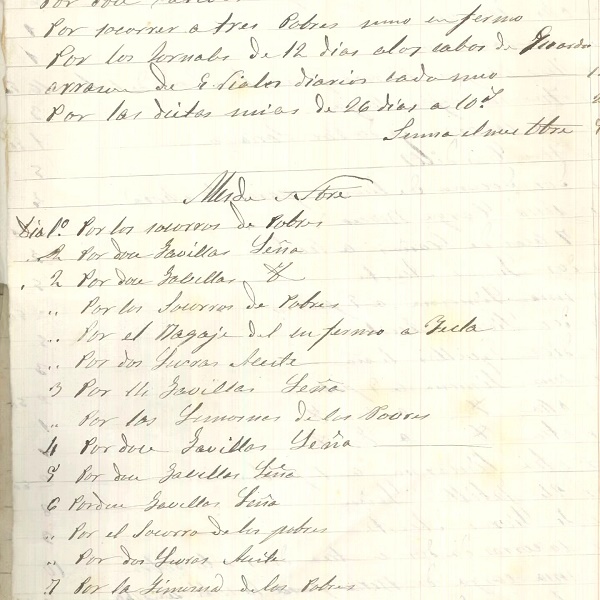 Por socorrer a tres Pobres uno enfermo
Por los Jornals de 12 dias a los cabos de
de diarios cada uno
Por las dietas mias de 26 dias a 10 r.
Suma el mes Obre
Mes de Nbre
Dia 1.º Por los socorros de Pobres
2 Por doce Gavillas Leña
2 Por doce Gabillas
" Por los Socorros de Pobres
" Por el Bagaje del enfermo a Yecla
" Por dos Livras Aceite
3 Por 14 Gavillas Leña
" Por las Limosnas de los Povres
4 Por doce Gavillas Leña
5 Por doce Gabillas Leña
6 Por doce Gavillas Leña
" Por el Socorro de los pobres
" Por dos Livras Aceite
7 Por la Limosna de los Pobres